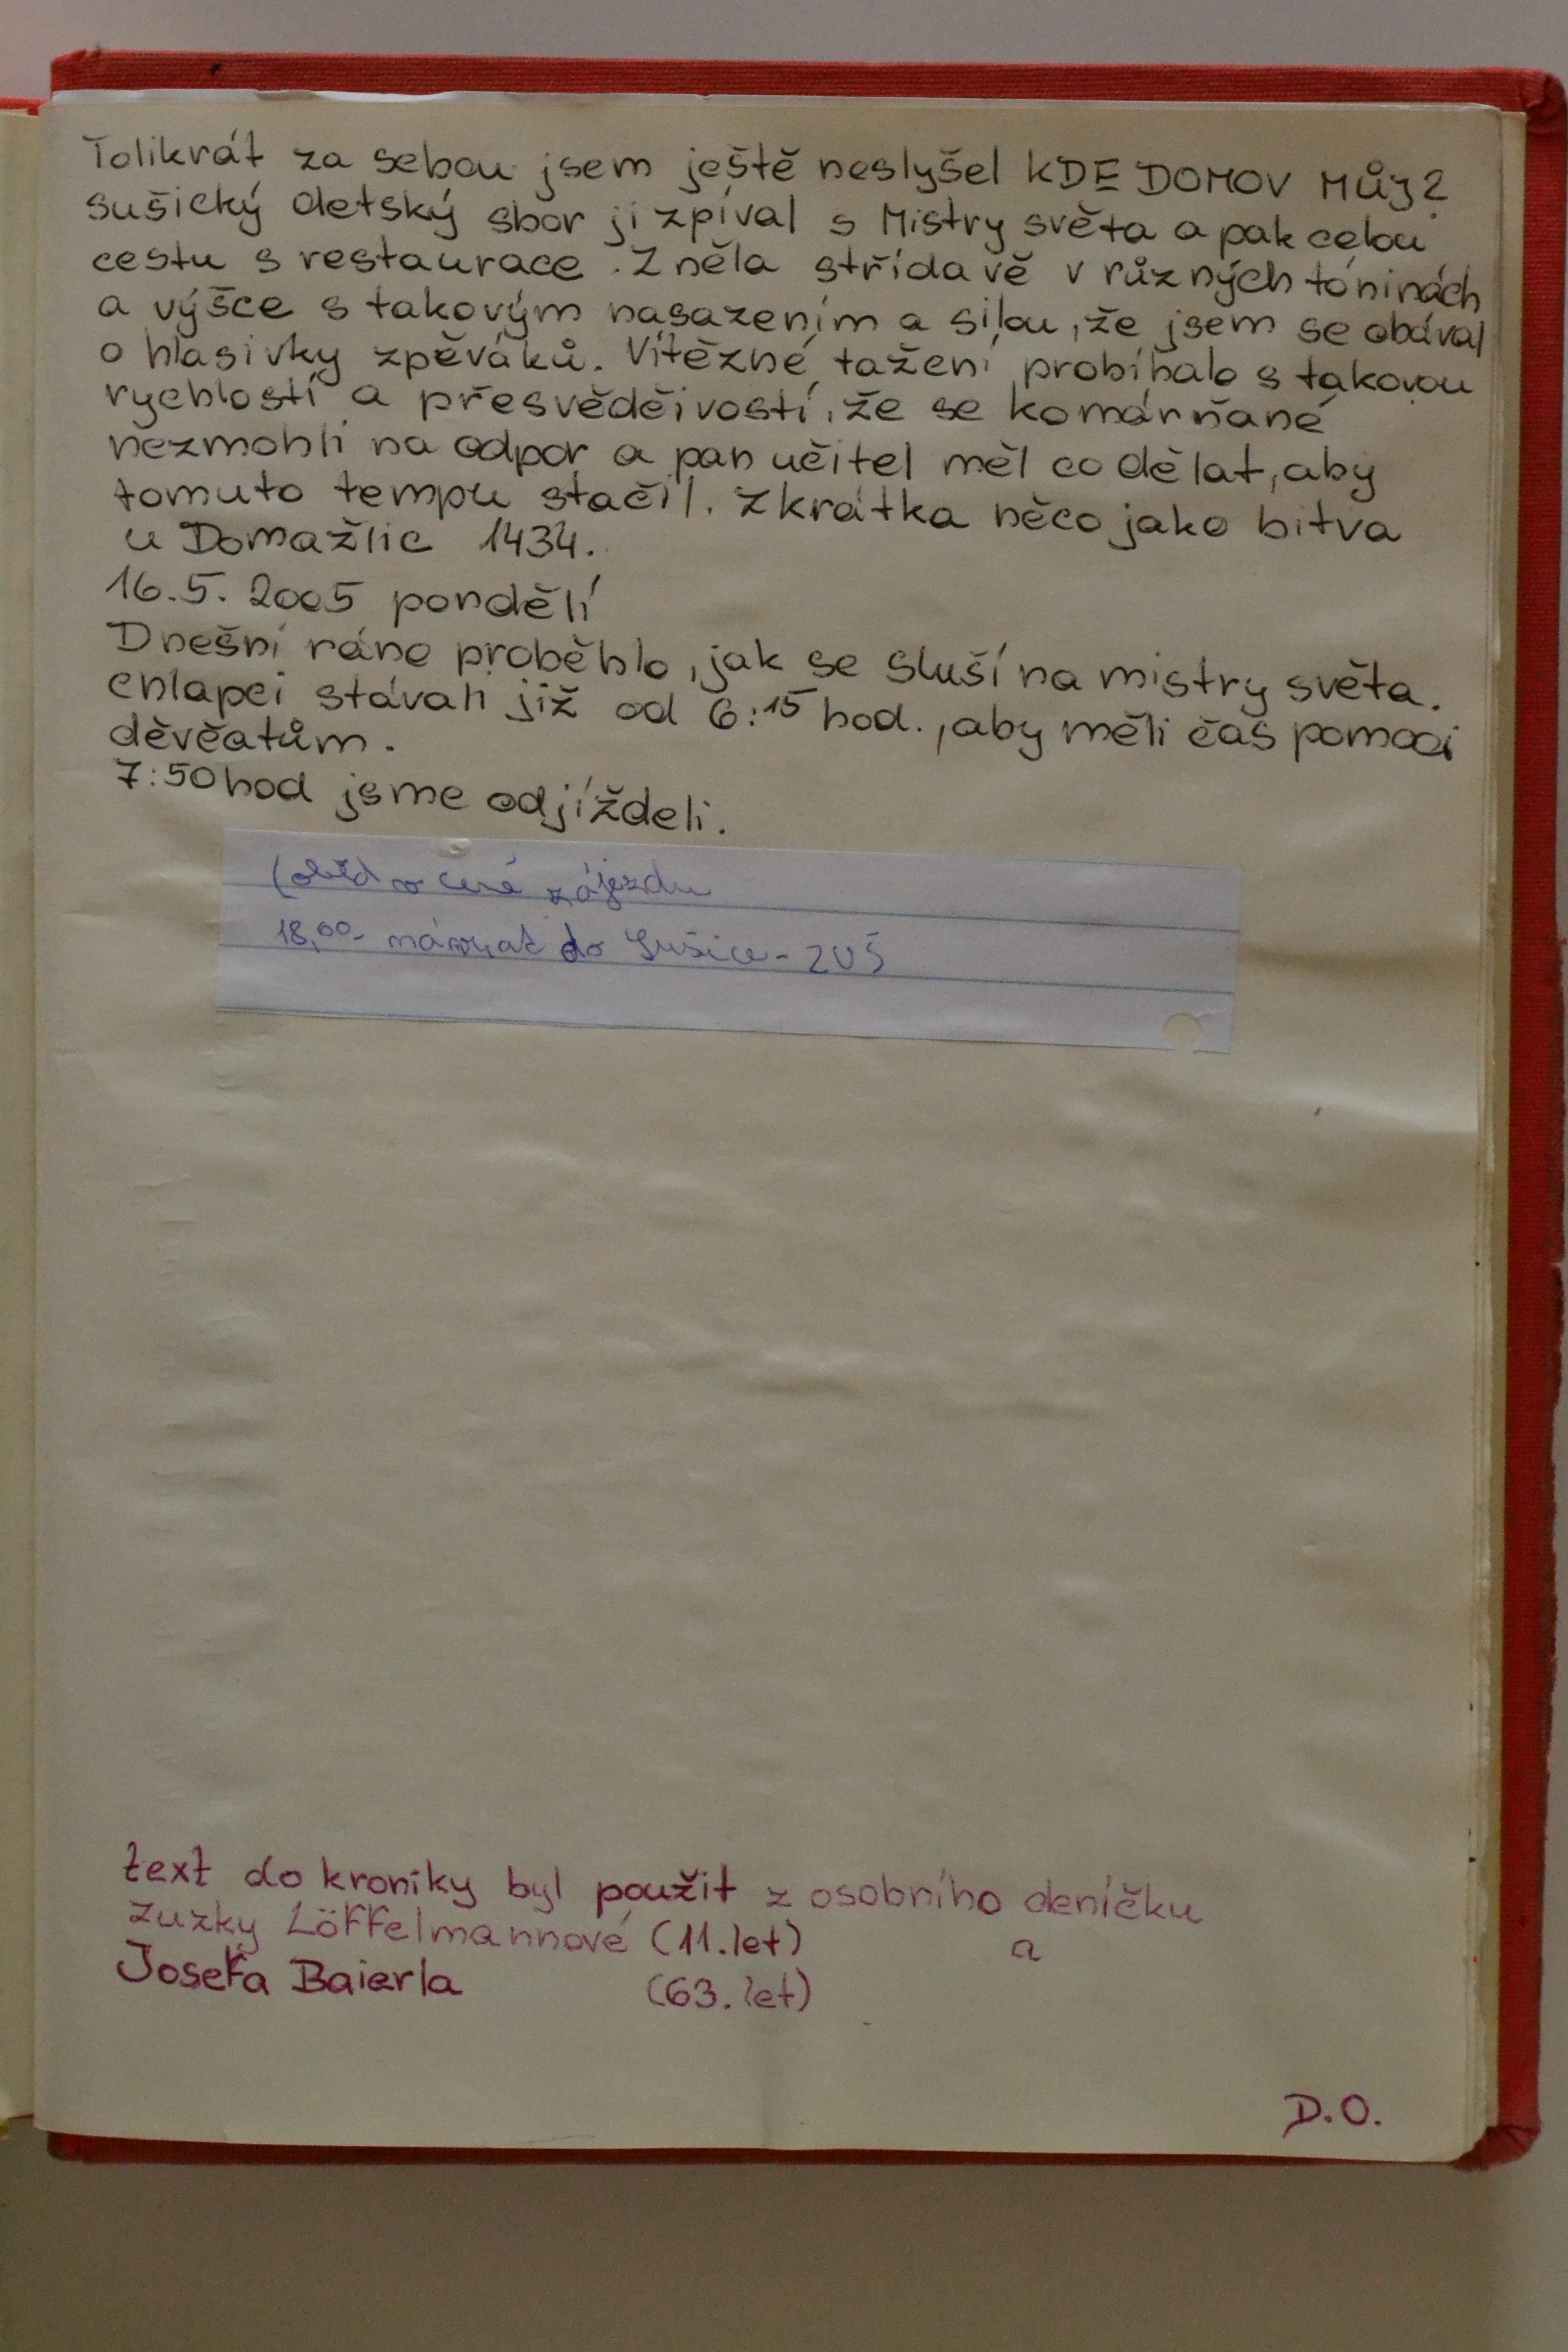 Tolikrát za sebou jsem ještě neslyšel KDE DOMOV MŮJ?
sušický detský sbor ji zpíval s Mistry světa a pak celou
cestu s restaurace. Zněla střídavě v různých tóninách
a výšce s takovým nasazením a silou, že jsem se obával
o hlasivky zpěváků. Vítězné tažení probíhalo s takovou
rychlostí a přesvědčivostí, že se komárňané
nezmohli na odpor a pan učitel měl co dělat, aby
tomuto tempu stačil. Zkrátka něco jako bitva
u Domažlic 1434.
16.5. 2005 pondělí
Dnešní ráno proběhlo, jak se sluší na mistry světa.
chlapci stávali již od 6:15 hod., aby měli čas pomoci
děvčatům.
7:50 hod jsme odjíždeli.
(oběd v ceně zájezdu
18,00- návrat do Sušice - ZUŠ
text do kroniky byl použit z osobního deníčku
Zuzky Löffelmannové (11.let) a
Josefa Baierla (63.let)
D.O.